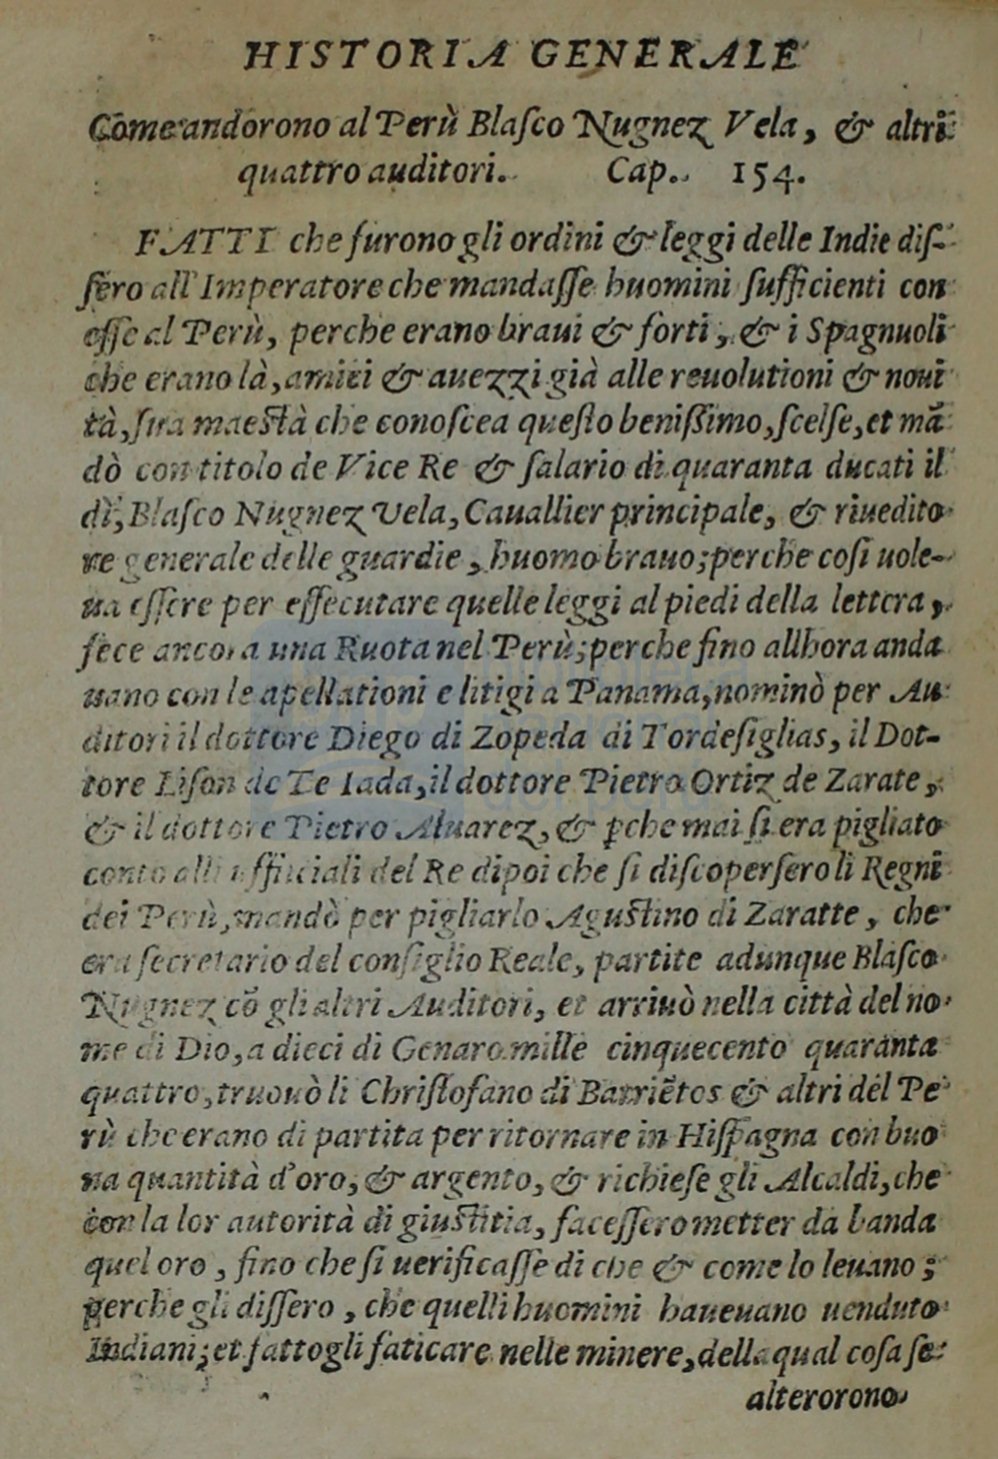 HISTORIA GENERALE
Come andorono al Perù Blaſco Nugnez Vela, & altri
quattro auditori. Cap. 154.
FATTI che furono gli ordini & leggi delle Indie diſ-
ſero all'Imperatore che mandaſſe huomini ſufficienti con
eſſe al Perù, perche erano braui & forti, & i Spagnuoli
che erano là, amici & auezzi già alle reuolutioni & noui
tà, ſua maestà che conoſcea queſto beniſſimo, ſcelſe, et mã
dò con titolo de Vice Re & ſalario di quaranta ducati il
dì, Blaſco Nugnez Vela, Cauallier principale, & riuedito
re generale delle guardie, huomo brauo; perche coſi uole-
ua eſſere per eſſecutare quelle leggi al piedi della lettera,
fece ancora una Ruota nel Perù; perche fino allhora anda
uano con le apellationi e litigi a Panama, nominò per Au
ditori il dottore Diego di Zopeda di Tordeſiglias, il Dot-
tore Liſon de Te lada, il dottore Pietro Ortiz de Zarate,
& il dottore Pietro Aluarez, & ꝑche mai ſi era pigliato
conto alli ufficiali del Re dipoi che ſi diſcoperſero li Regni
dei Perù, mandò per pigliarlo Agustino di Zaratte, che
era ſecretario del conſiglio Reale, partite adunque Blaſco
Nugnez cõ gli altri Auditori, et arriuò nella città del no
me di Dio, a dieci di Genaro mille cinquecento quaranta
quattro, truouò li Chriſtofano di Barriẽtos & altri del Pe
rù che erano di partita per ritornare in Hiſpagna con buo
na quantità d'oro, & argento, & richieſe gli Alcaldi, che
con la lor autorità di giustitia, faceſſero metter da banda
quel oro, fino che ſi uerificaſſe di che & come lo leuano;
perche gli diſſero, che quelli huomini haueuano uenduto
Indiani; et fattogli faticare nelle minere, della qual coſa ſe
alterorono